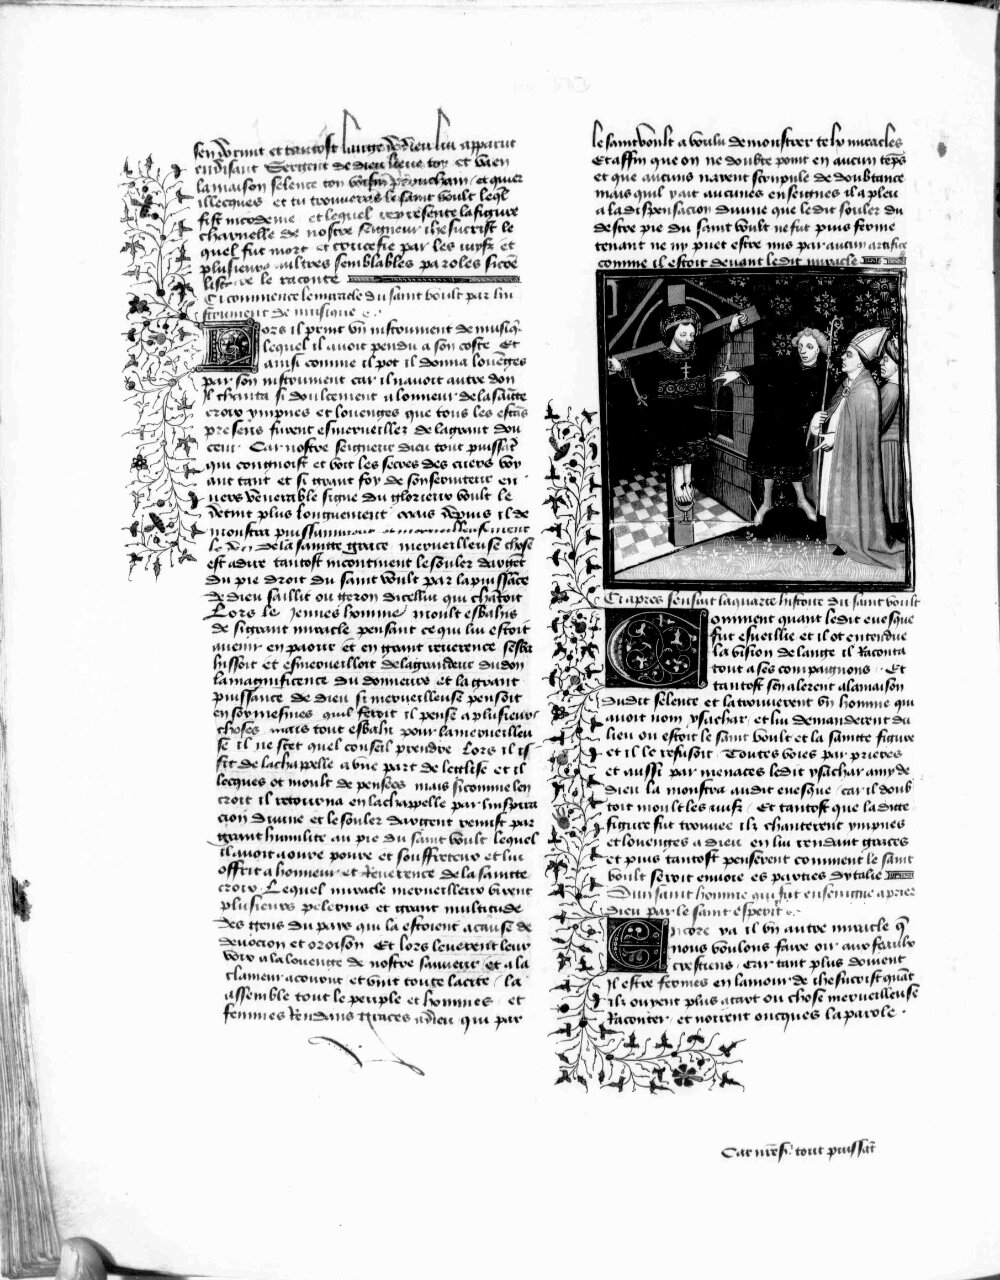 sen dormit et tantost lange de dieu lui apparut
en disant Sergent de dieu lieve toy et vien
la maison selence ton voisin prouchain et quier
illecques et tu trouveras le saint voult leql
fist nicodeme et lequel represente la figure
charnelle de nostre seigneur ihesucrist le
quel fut mort et crucefie par les iuifz et
plusieurs aultres semblables paroles sicõe
le raconte
Ci commence le miracle du saint voult par lin
strument de musique
Lors il print vn instrument de musiq̃
lequel il avoit pendu a son coste Et
ainsi comme il pot il donna louẽges
par son instrument car il navoit autre don
Il chanta si doulcement a lonneur de la saĩcte
croix ympnes et louenges que tous les estãs
presens furent esmerveillez de la grant dou
ceur Car nostre seigneur dieu tout puissãt
qui congnoist et voit les secres des cuers voy
ant tant et si grant foy de son serviteur en
vers venerable signe du glorieux voult le
detint plus longuement mais depuis il de
monstra puissamment et merveilleusement
le don de la saincte grace merveilleuse chose
est a dire tantost incontinent le souler dargẽt
du pie droit du saint voult par la puissãce
de dieu saillit ou geron dicellui qui chãtoit
Lors le jennes homme moult esbahis
de si grant miracle pensant ce qui lui estoit
avenu en paour et en grant reverence sesba
hissoit et esmerveilloit de la grandeur du don
la magnificence du donneur et la grant
puissance de dieu si merveilleuse pensoit
en soy mesmes quil feroit il pense a plusieurs
choses mais tout esbahi pour la merveilleu
se il ne scet quel conseil prendre Lors il is
sit de la chappelle a vne part de leglise et il
lecques et moult de pensees mais si comme len
croit il retourna en la chappelle par linspira
cion divine et le souler dargent remist par
grant humilite au pie du saint voult lequel
il avoit aoure poure et souffreteux et lui
offrit a honneur et reverence de la saincte
croix Lequel miracle merveilleux virent
plusieurs pelerins et grant multitude
des gens du pays qui la estoient a cause de
devocion et oroison Et lors leverent leur
voix a la louenge de nostre sauveur et a la
clameur acourut et vint toute la cite la
assemble tout le peuple et hommes et
femmes rendans graces a dieu qui par
le saint voult a voulu demonstrer telz miracles
Et affin que on ne doubte point en aucun tẽps
et que aucuns naient scrupule de doubtance
mais quil y ait aucunes enseignes il a pleu
a la dispensacion divine que ledit souler du
destre pie du saint voult ne fut puis ferme
tenant ne ny puet estre mis par aucun artifice
comme il estoit devant ledit miracle
Ci apres sensuit la quarte histoire du saint voult
Comment quant ledit evesque
fut esveillie et il ot entendue
la vision de lange il raconta
tout a ses compaignons Et
tantost sen alerent a la maison
dudit selence et la trouverent vn homme qui
avoit nom ysachar et lui demanderent du
lieu ou estoit le saint voult et la saincte figure
et il le refusoit Toutes voies par prieres
et aussi par menaces ledit ysachar amy de
dieu la monstra audit evesque car il doub
toit moult les iuifz Et tantost que ladicte
figure fut trouvee ilz chanterent ympnes
et louenges a dieu en lui rendant graces
et puis tantost penserent comment le saint
voult seroit envoie es parties dytalie
Dun saint homme qui fut enseigne a prier
dieu par le saint esperit
Encore ya il vn autre miracle q̃
nous voulons faire oir aux feaulx
crestiens Car tant plus doivent
Il estre fermes en lamour de ihesucrist quãt
ilz ouyent plus atart ou chose merveilleuse
Raconter et notent oncques la parole
Car nr̃e sr̃ tout puissãt